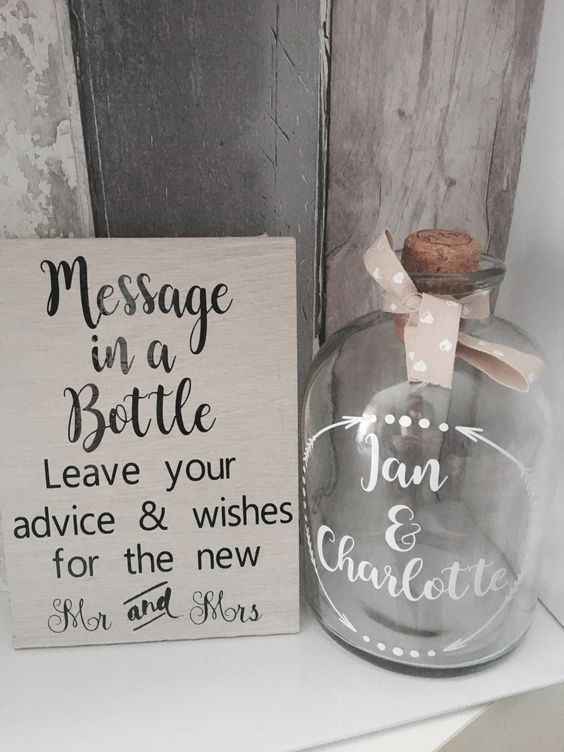 Message
in a
Bottle
Leave your
advice & wishes
for the new
Mr and Mrs
Jan
&
Charlotte